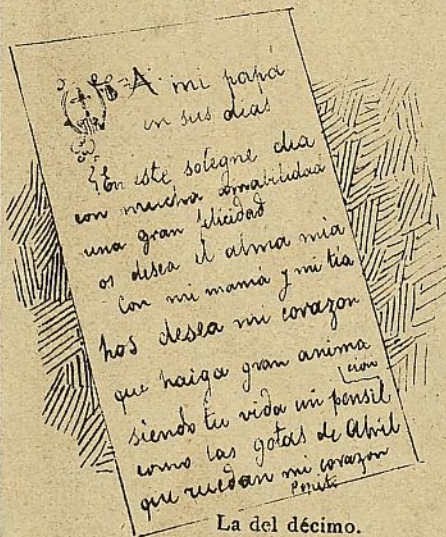 A mi papá
en sus dias
En este solegne dia
con mucha amabilidad
una gran felicidad
os desea el alma mia
Con mi mamá y mi tia
hos desea mi corazon
que haiga gran anima
cion
siendo tu vida un pensil
como las gotas de Abril
que ruedan mi corazon
La del décimo.